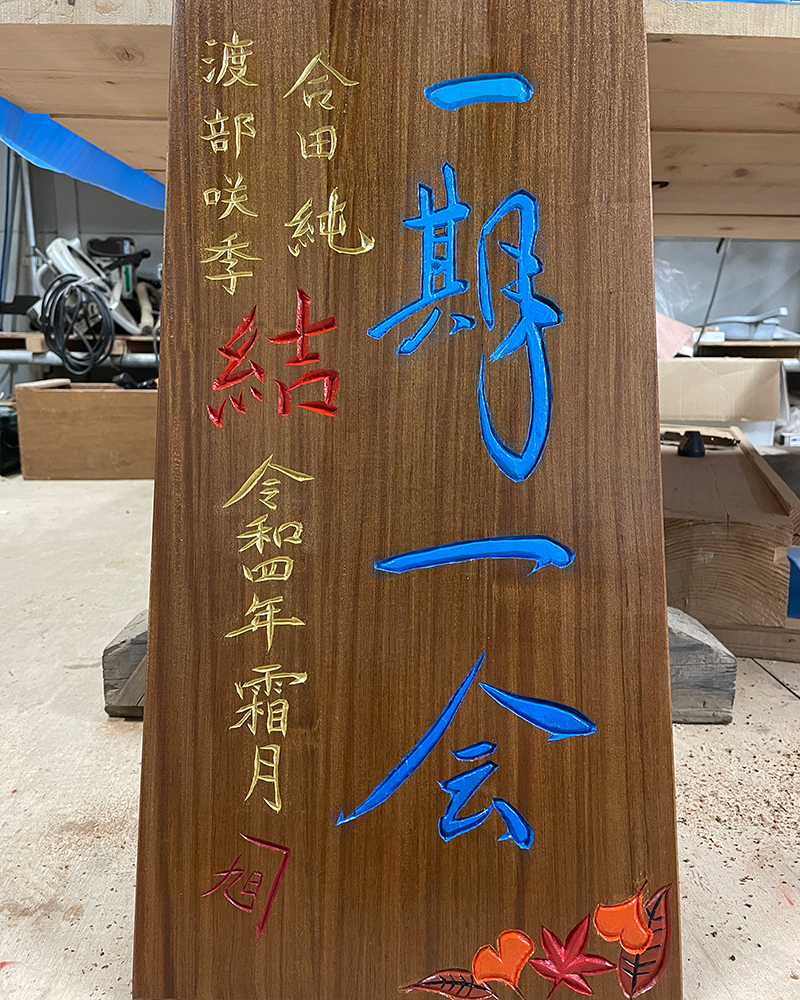 一期一会
合田純
渡部咲季
結
令和四年霜月
旭